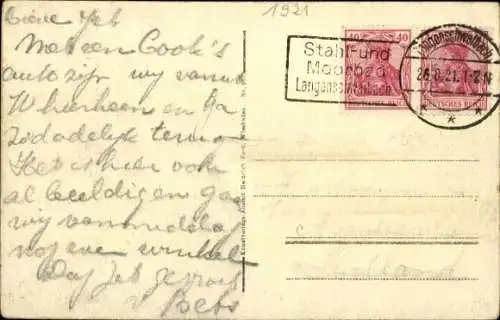 Lieve Jet
1921
Met een Cook's
auto zijn wij vanuit
W hierheen en ga
zodadelijk terug
Het is hier ook
al beeldig en gaan
wij vanmiddag
nog even winkel
Dag Jet gegroet
Bets
Stahl- und
Moorbad
Langenschwalbach
40 40
Langenschwalbach
26.8.21. 1-2 N
DEUTSCHES REICH
Holland